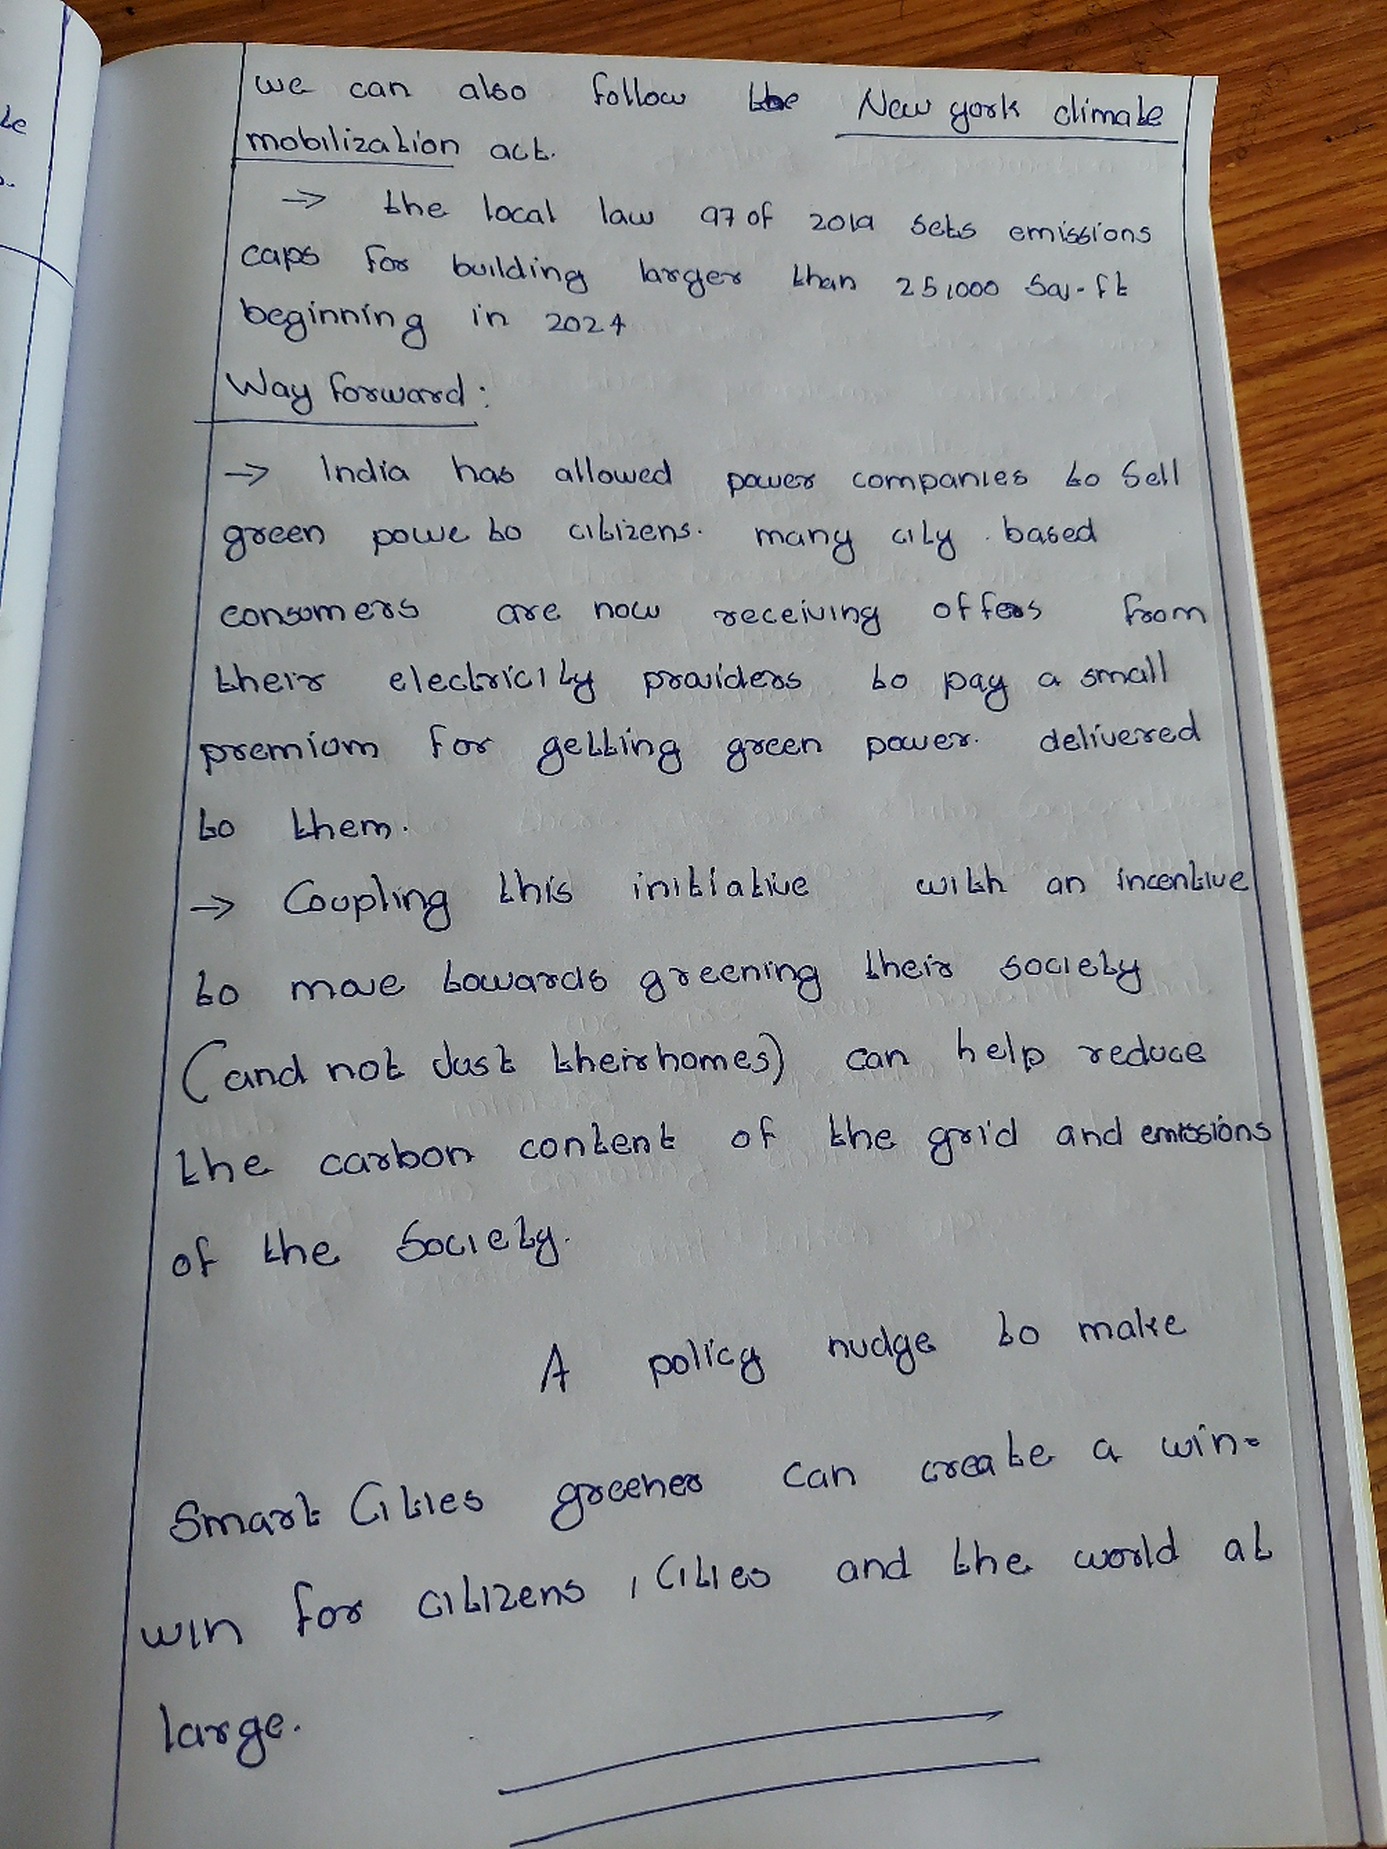 we can also follow the New york climate
mobilization act.
→ the local law 97 of 2019 sets emissions
caps for building larger than 25,000 Sq-ft
beginning in 2024
Way forward:
→ India has allowed power companies to Sell
green powe to citizens. many city based
consumers are now receiving offers from
their electricity providers to pay a small
premium for getting green power. delivered
to them.
→ Coupling this initiative with an incentive
to move towards greening their society
(and not Just their homes) can help reduce
the carbon content of the grid and emissions
of the Society.
A policy nudge to make
Smart Cities greener can create a win-
win for citizens, Cities and the world at
large.